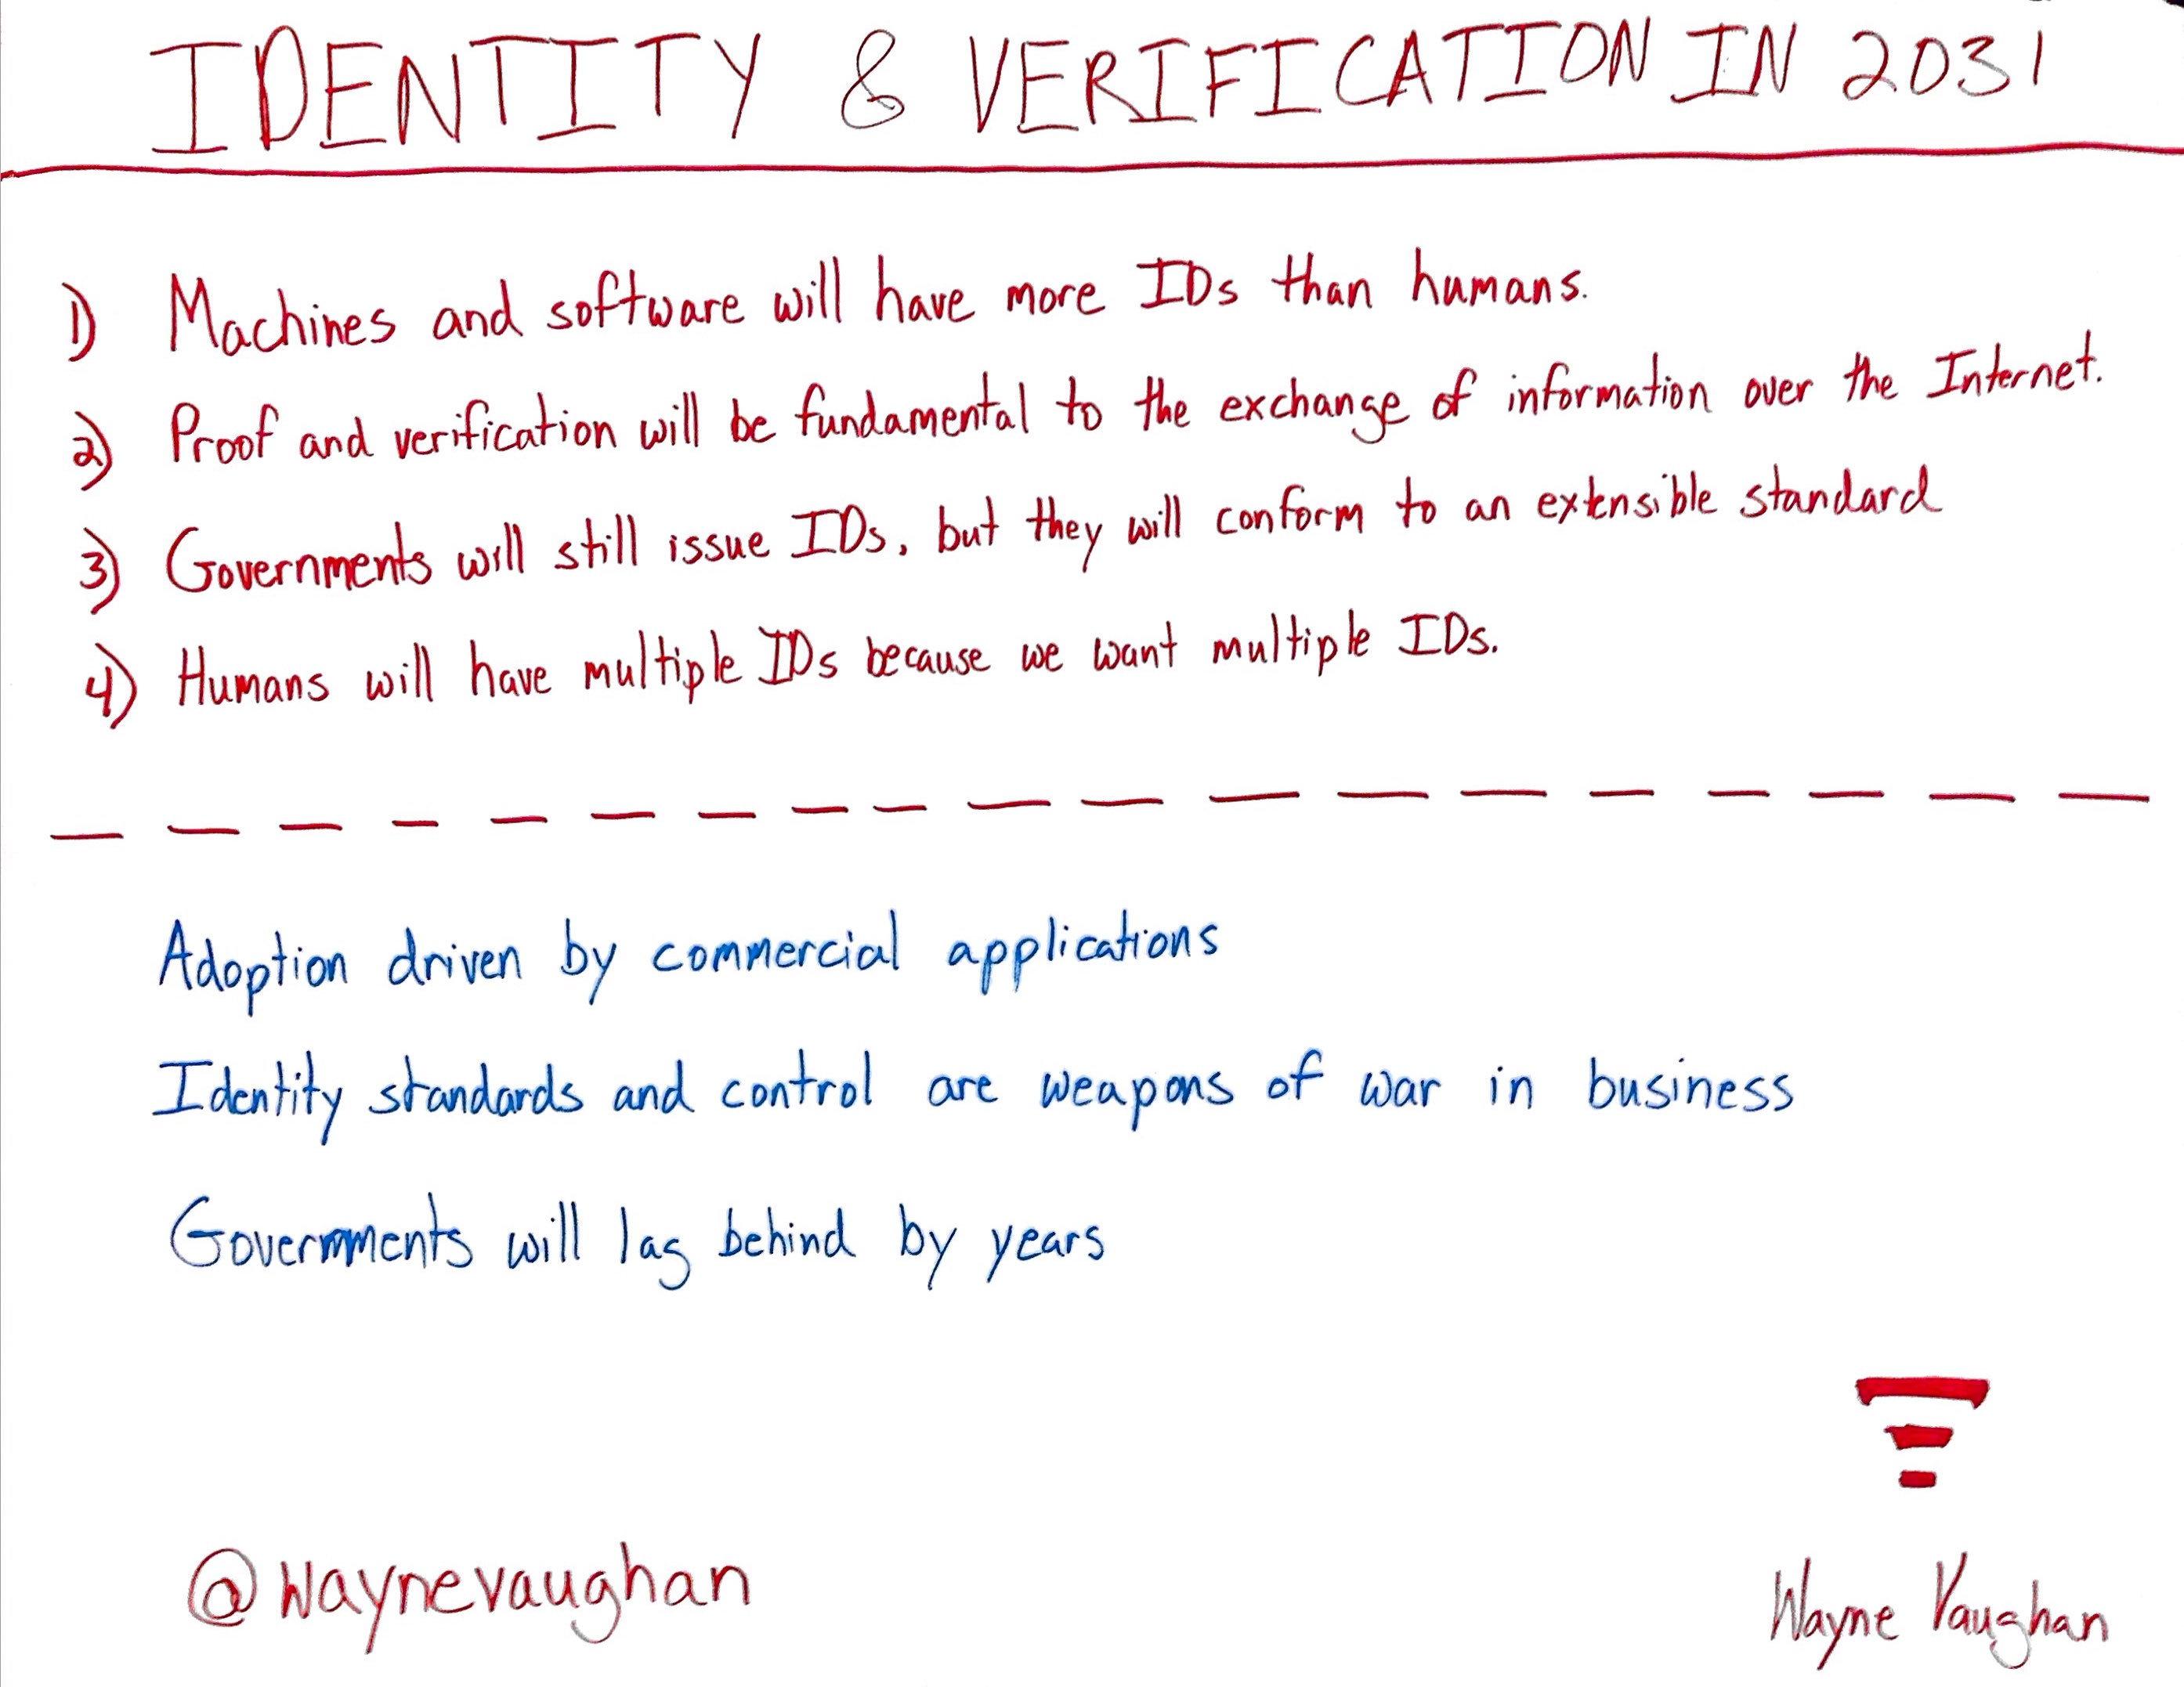 IDENTITY & VERIFICATION IN 2031
1) Machines and software will have more IDs than humans.
2) Proof and verification will be fundamental to the exchange of information over the Internet.
3) Governments will still issue IDs, but they will conform to an extensible standard
4) Humans will have multiple IDs because we want multiple IDs.
Adoption driven by commercial applications
Identity standards and control are weapons of war in business
Governments will lag behind by years
@waynevaughan
Wayne Vaughan